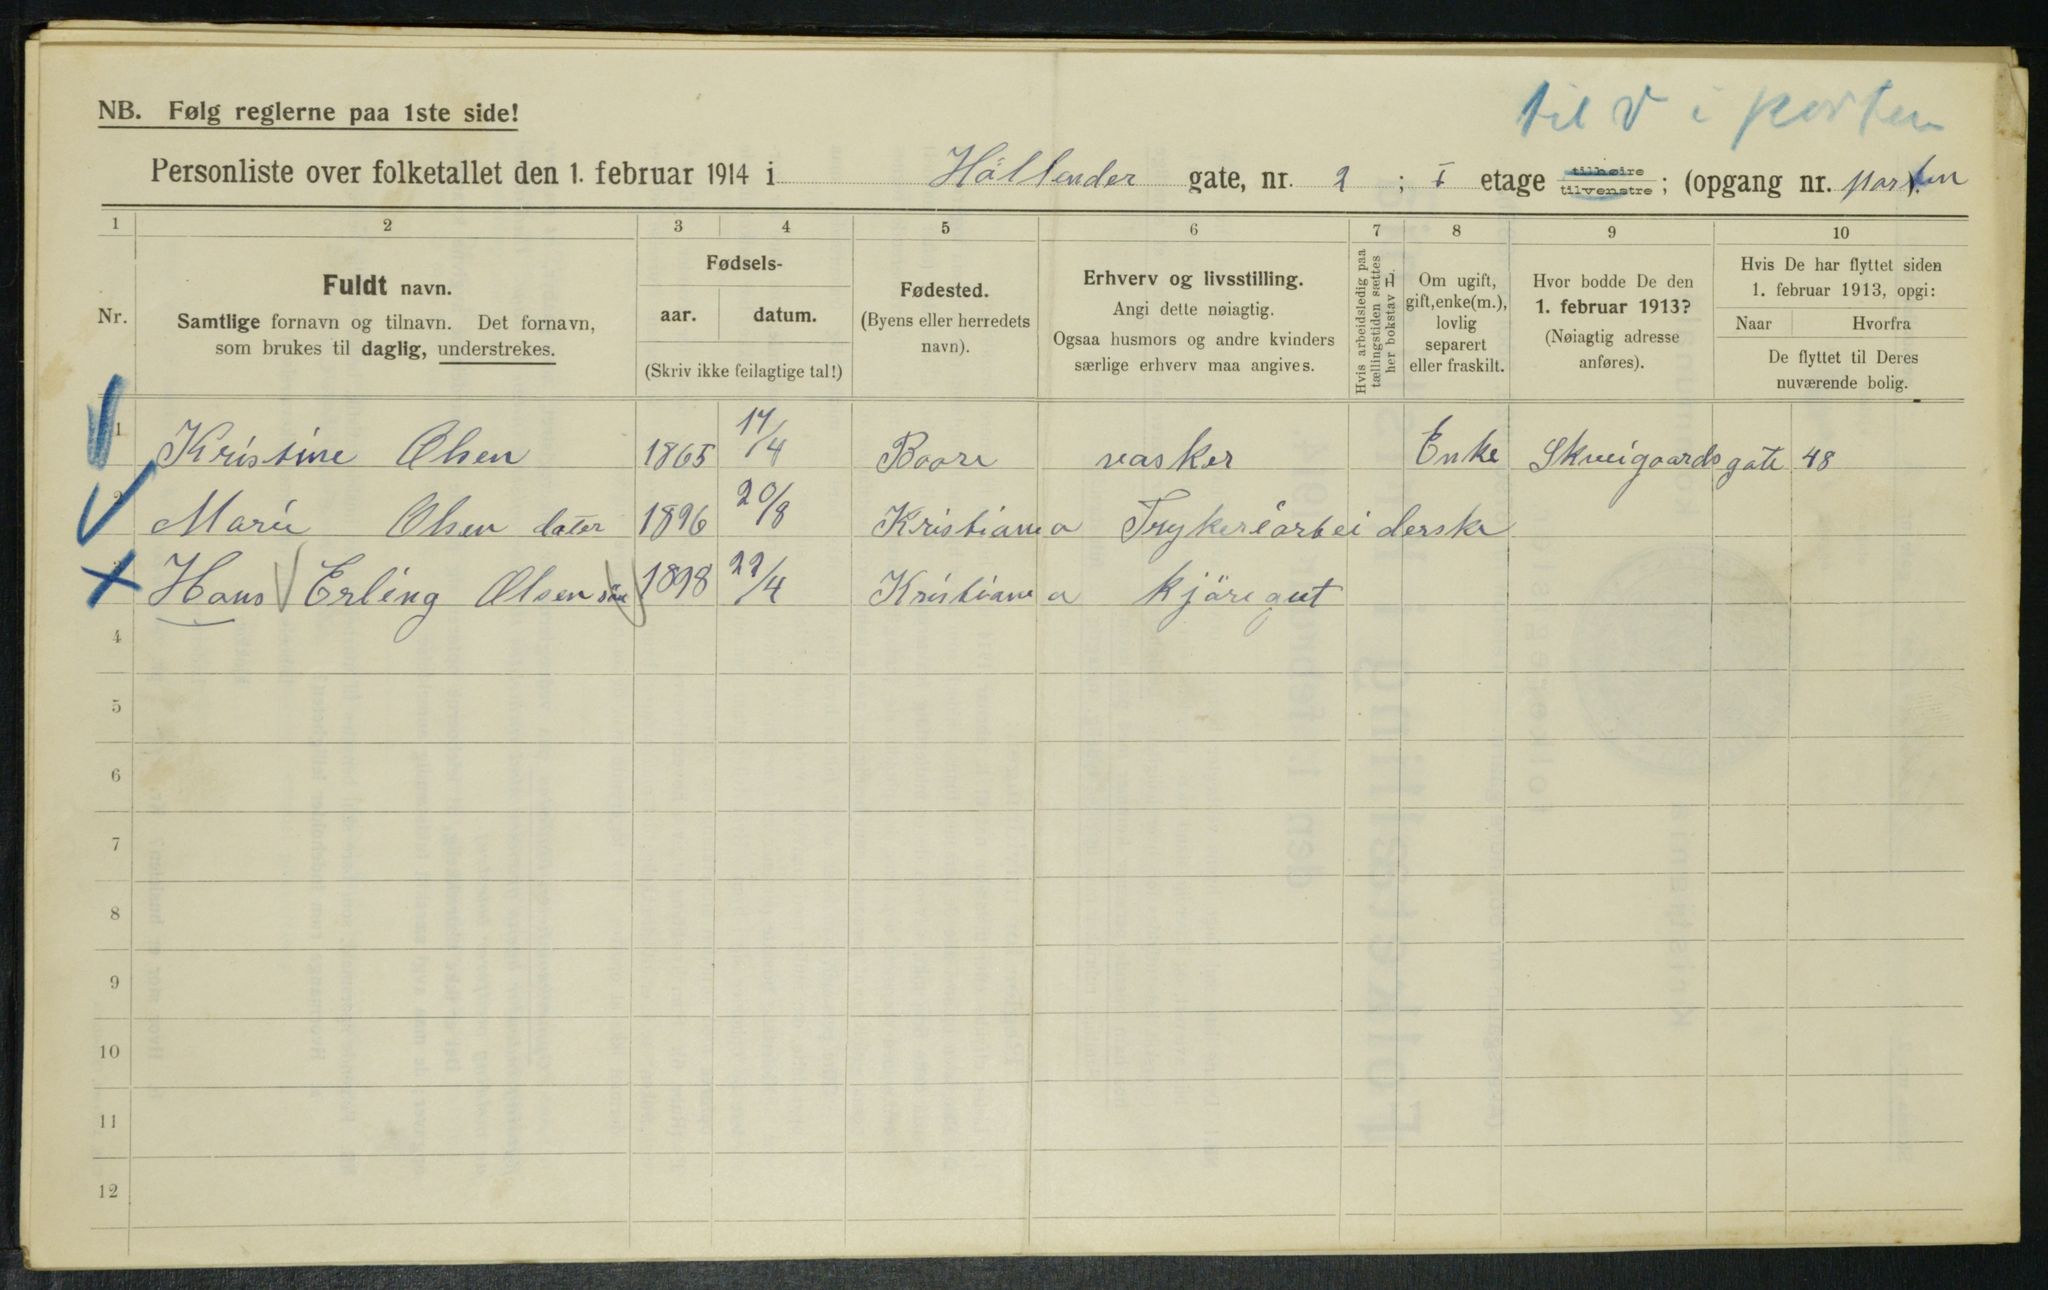 til V i porten
NB. Følg reglerne paa 1ste side!
Personliste over folketallet den 1. februar 1914 i Hollender gate, nr. 2 ; I etage tilhøire tilvenstre ; (opgang nr. porten
1 2 3 4 5 6 7 8 9 10
Nr.
Fuldt navn.
Samtlige fornavn og tilnavn. Det fornavn,
som brukes til daglig, understrekes.
Fødsels-
aar. datum.
(Skriv ikke feilagtige tal!)
Fødested.
(Byens eller herredets
navn).
Erhverv og livsstilling.
Angi dette nøiagtig.
Ogsaa husmors og andre kvinders
særlige erhverv maa angives.
Hvis arbeidsledig paa
tællingstiden sættes
her bokstav L.
Om ugift,
gift, enke(m.),
lovlig
separert
eller fraskilt.
Hvor bodde De den
1. februar 1913?
(Nøiagtig adresse
anføres).
Hvis De har flyttet siden
1. februar 1913, opgi:
Naar Hvorfra
De flyttet til Deres
nuværende bolig.
1 Kristine Olsen 1865 17/4 vasker Enke Skveigaardsgate 48
2 Marie Olsen dater 1896 20/8 Kristiania Trykeriarbeiderske
3 Hans Erling Olsen søn 1898 22/4 Kristiania kjöregut
4
5
6
7
8
9
10
11
12